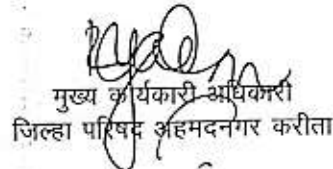 मुख्य कार्यकारी अधिकारी
जिल्हा परिषद अहमदनगर करीता